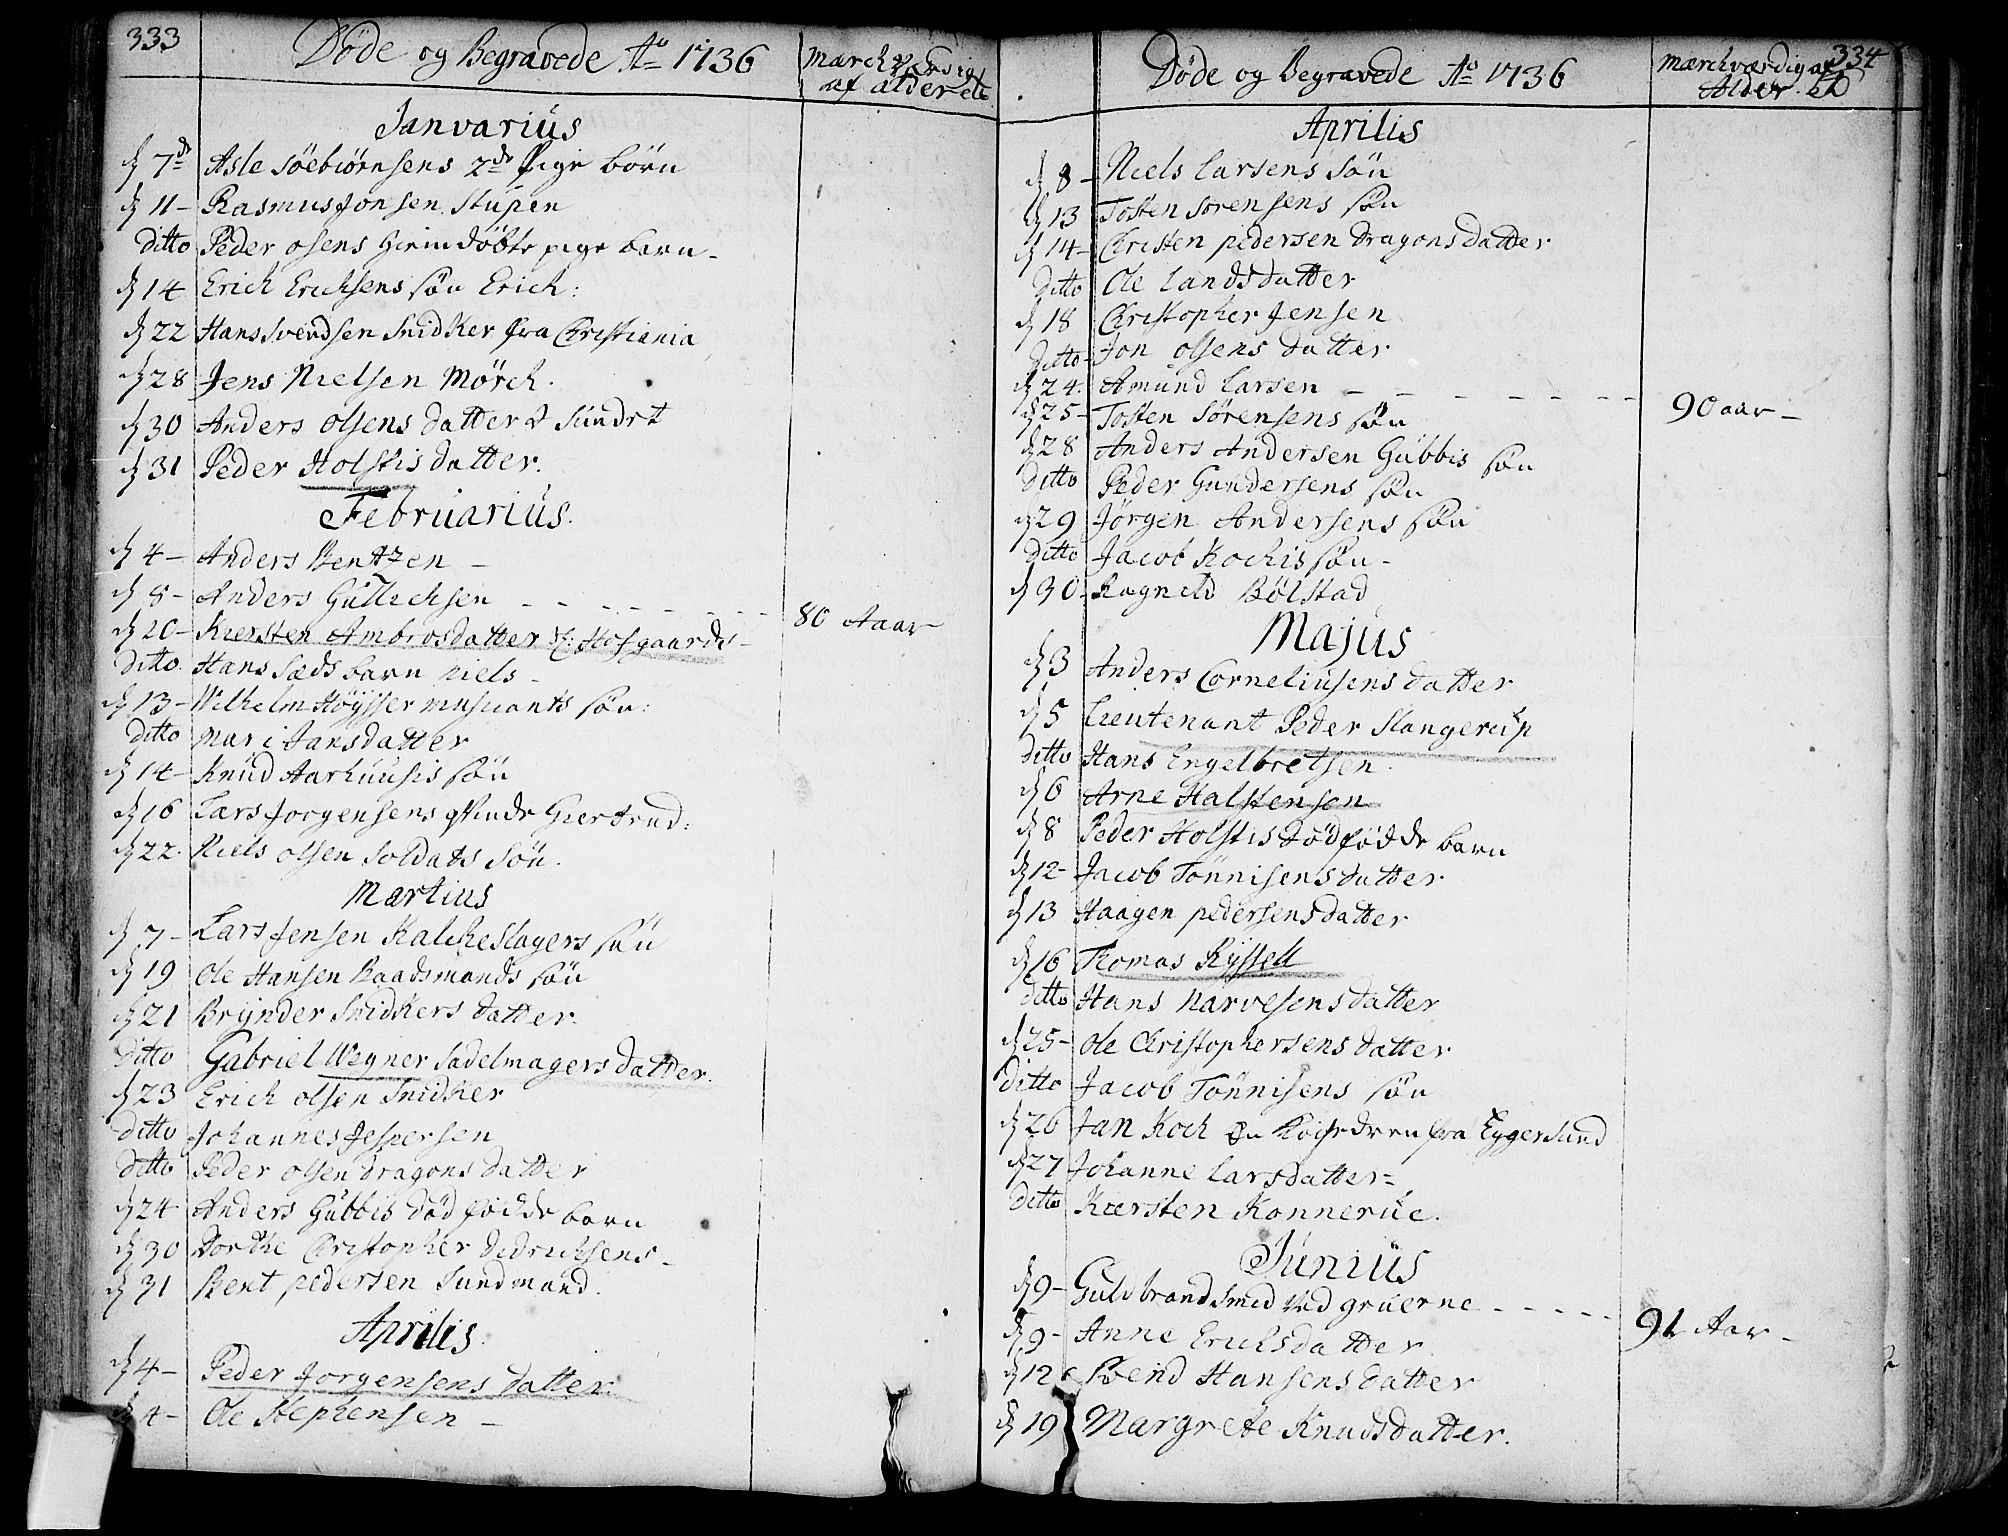 333
Døde og Begravede Ao 1736
Merckværdig
af alder etc
Januarius
d 7de Asle Söebiörnsens 2de Pige börn
d 11 - Rasmus Jonsen Stüpen
ditto Peder Olsens hiemdöbte pige barn -
d 14 Erich Erichsens sön Erich:
d 22 Hans Svendsen Snidker fra Christiania
d 28 Jens Nielsen Mörch.
d 30 Anders Olsens datter
d 31 Peder Holstis datter.
Februarius.
d 4 - Anders Bentzen -
d 8 - Anders Gullichsen - - - - - - - - 80 Aaar
d 20 - Kiersten Ambrosdatter Hofgaards -
ditto. Hans barn niels -
d 13 - Wilhelm Höysser musicants sön:
ditto Mari Jansdatter
d 14 - Knud Aarhuusis sön
d 16 Lars Jorgensens qvinde Giertrud:
d 22. Niels olsen Soldats Sön.
Martius
d 7 - Lars Jensen Kalckeslagers sön
d 19 Ole Hansen Baadsmands sön
d 21 Brynder Snidkers datter.
Ditto Gabriel Wegner Sadelmagers datter.
d 23 Erich olsen Snidker
ditto Johannes Jespersen
ditto Peder olsen dragons datter
d 24 Anders Gubbis död födde barn
d 30 Dorthe Christopher Didrichsens -
d 31 Bent pedersen Sundmand.
Aprilis.
d 4 - Peder Jorgensens datter.
d 4 - Ole Stephensen -
334
Døde og Begravede Ao 1736
Mærckværdig af
Alder. etc
Aprilis
d 8 - Niels Larsens Sön
d 13 Tosten Sörensens sön
d 14 - Christen pedersen dragons datter
ditto Ole Lands datter
d 18 Christopher Jensen
ditto - Jon olsens datter
d 24. Amund Larsen - - - - - - - 90 aar -
d 25 - Tosten Sörensens sön
d 28 Anders Andersen Gübbis sön
ditto Peder Gundersens sön
d 29 Jörgen Andersens sön
ditto Jacob Kochis sön -
d 30 - Ragnild Bölstad
Majus
d 3 Anders Corneliusens datter
d 5 Lieutenant Peder Slangerup
ditto Hans Engelbretsen.
d 6 Arne Halstensen
d 8 Peder Holstis dödfödde barn
d 12 - Jacob Tönnisens datter
d 13 Haagen pedersens datter
d 16 Thomas Ryssell
ditto Hans Narvesens datter
d 25 - Ole Christophersens datter
ditto Jacob Tönnisens sön
d 26 Jan Koch fra Eggersund
d 27 Johanne Larsdatter =
ditto Kærsten Konnerue.
Junius
d 9 - Gulbrand Smed ved gruerne - - - - - 91 Aar -
d 9 - Anne Erichsdatter.
d 12 Svend Hansens datter
d 19 Margrete Knudsdatter.